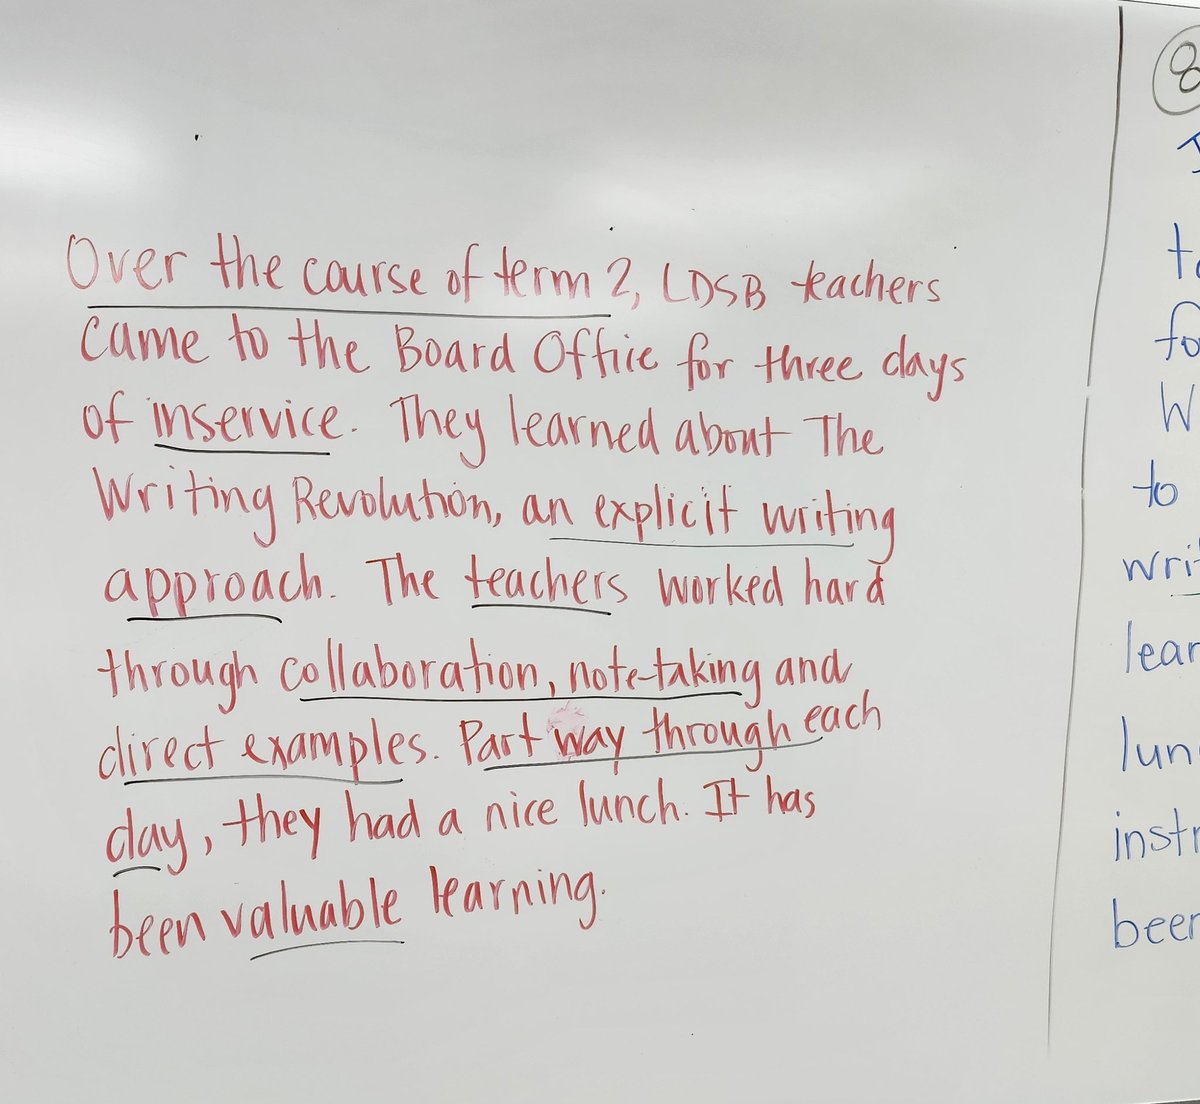 Over the course of term 2, LDSB teachers
came to the Board Office for three days
of inservice. They learned about The
Writing Revolution, an explicit writing
approach. The teachers worked hard
through collaboration, note-taking and
direct examples. Part way through each
day, they had a nice lunch. It has
been valuable learning.
8
to
fo
W
to
writ
lear
lun
instr
been